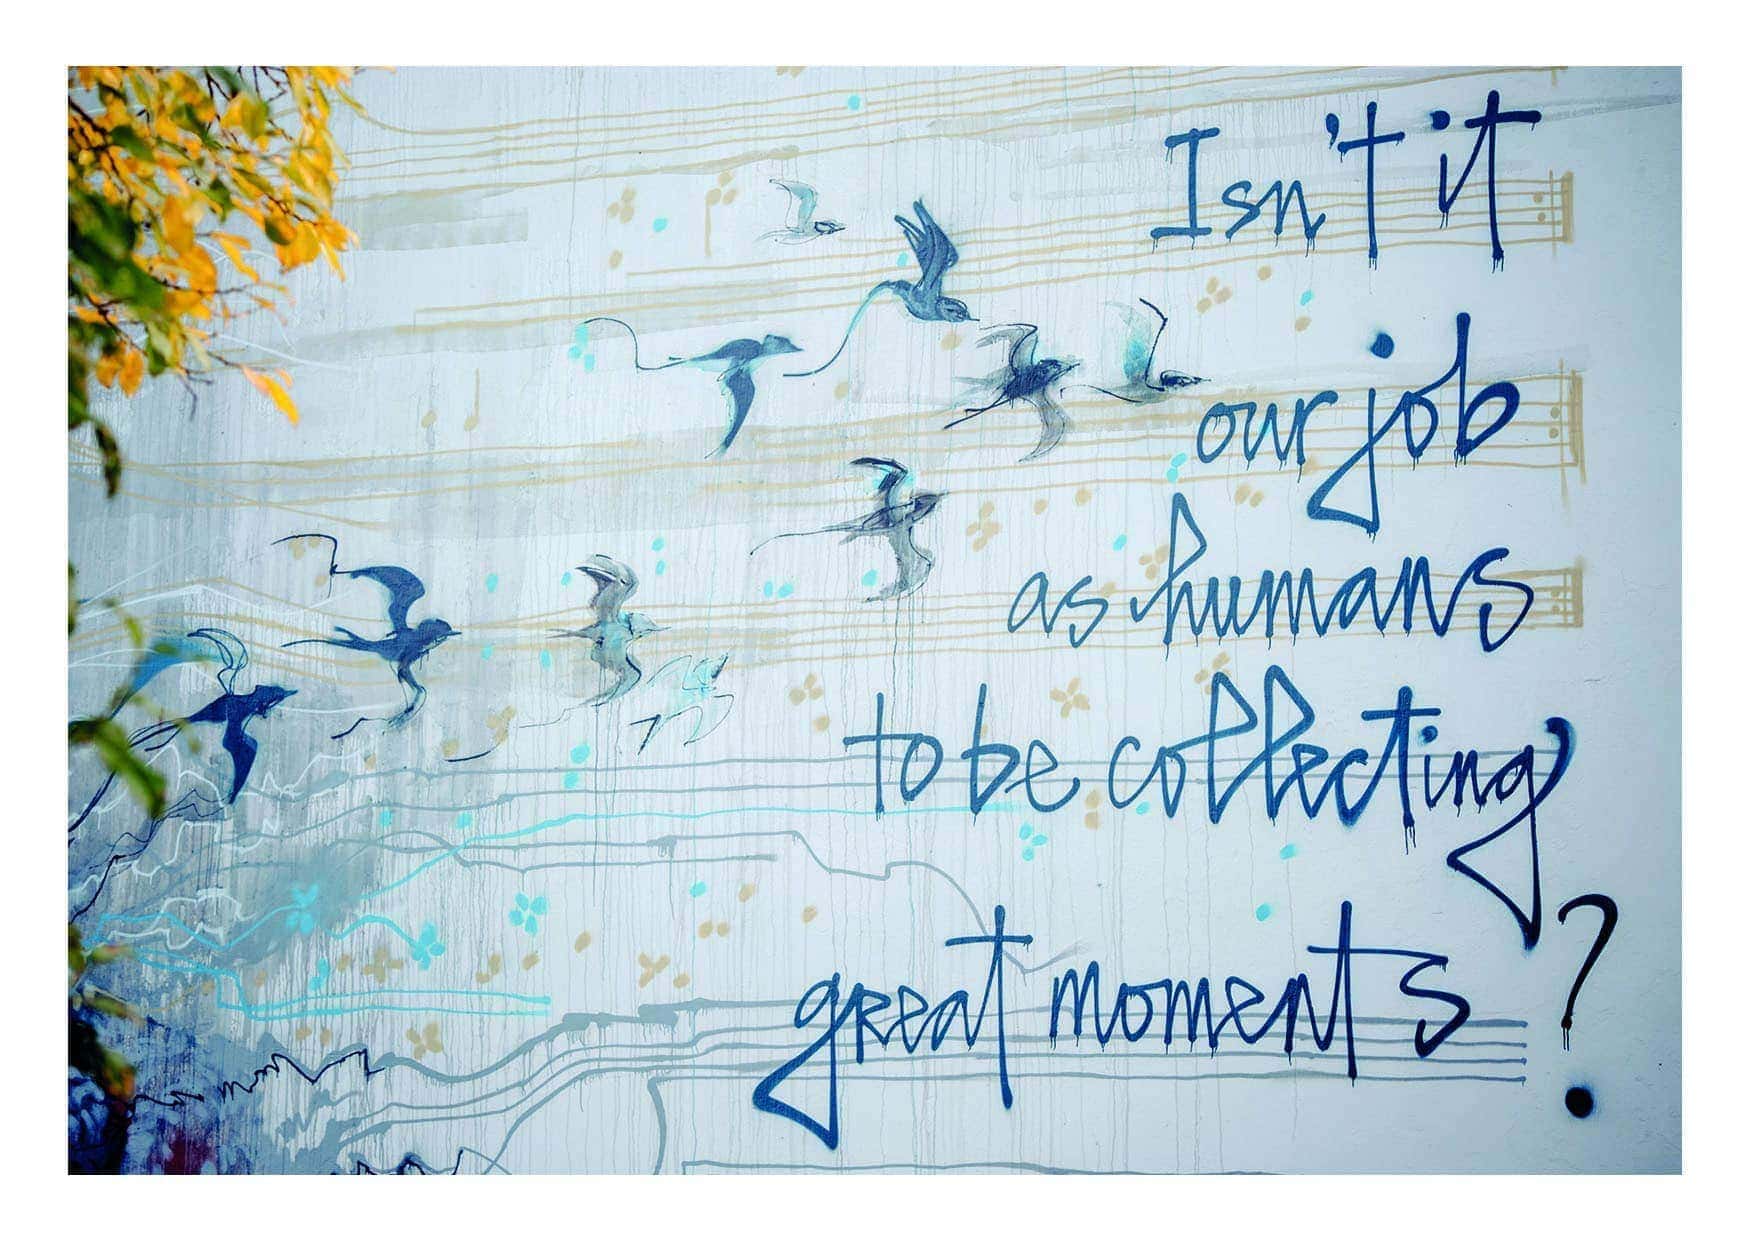 Isn't it
our job
as humans
to be collecting
great moments?